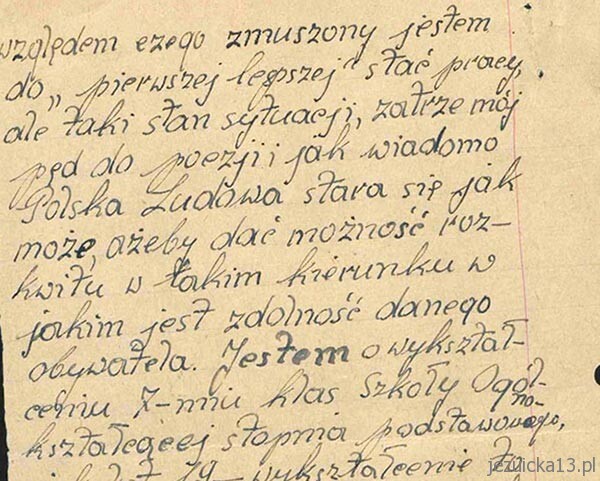 względem czego zmuszony jestem
do „pierwszej lepszej” stać pracy,
ale taki stan sytuacji, zatrze mój
pęd do poezji i jak wiadomo
Polska Ludowa stara się jak
może, ażeby dać możność roz-
kwitu w takim kierunku w
jakim jest zdolność danego
obywatela. Jestem o wykształ-
ceniu 7-miu klas Szkoły Ogól-
no-
kształcącej stopnia podstawowego,
lat 19 - wykształcenie
jezulicka13.pl